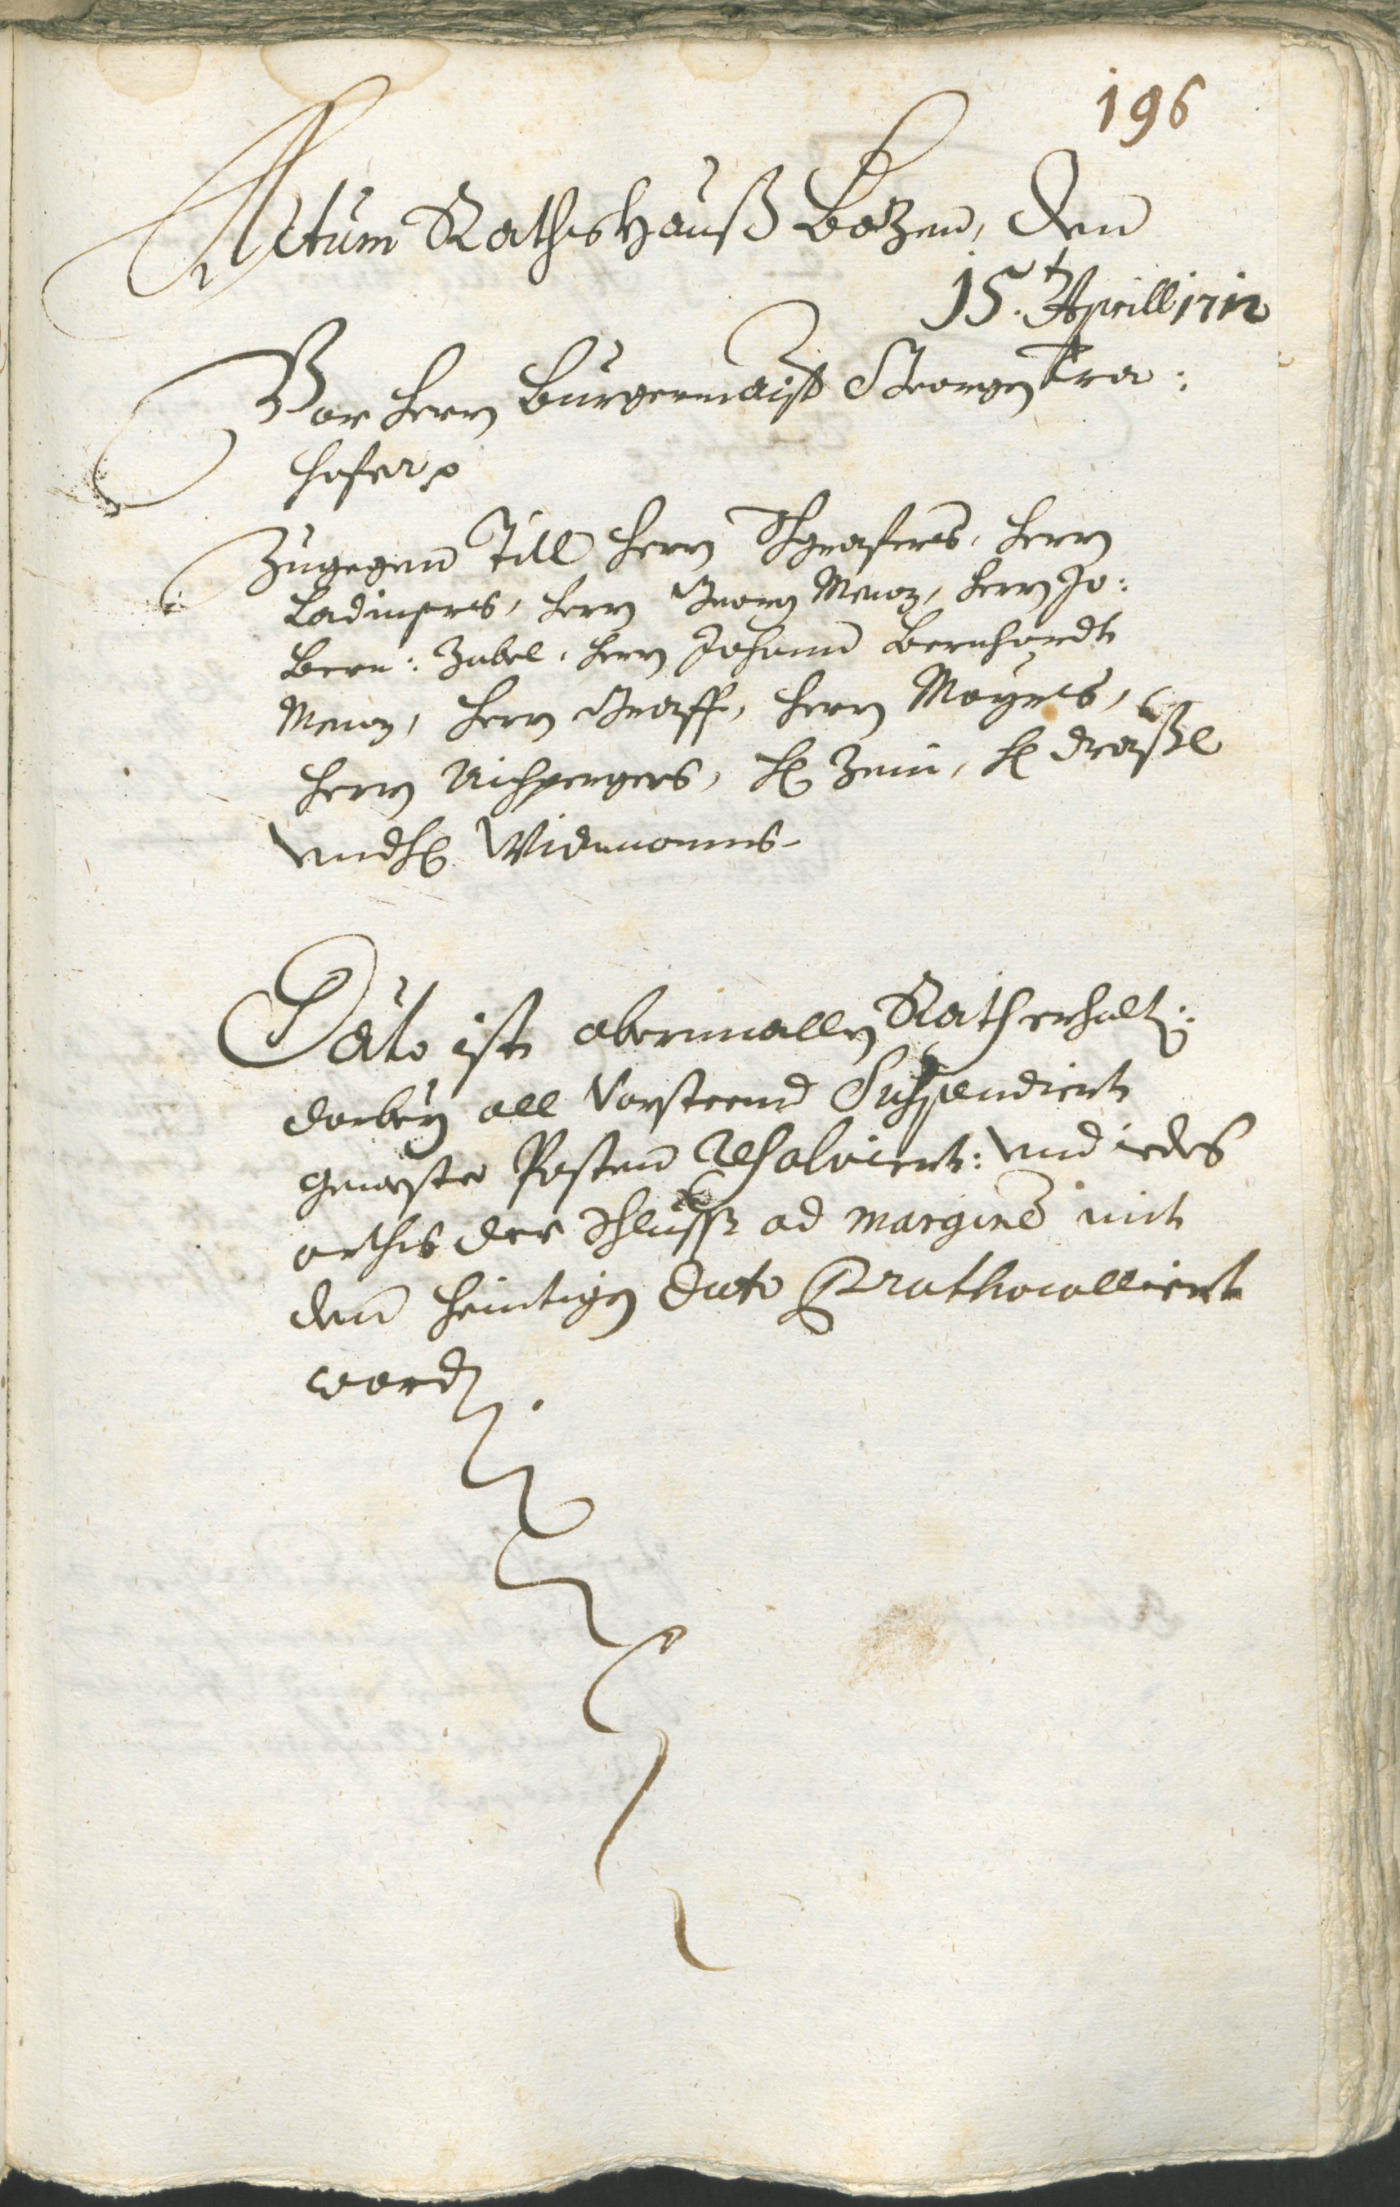 196
Actum Rathshauß Bozen, den
15.t Aprill 1712
Vor herrn Burgermaist Georgen Tra:
hofer
Zugegen Titl herrn Grafens, herrn
Ladinsers, herrn Georg Menz, herrn Jo:
Bern: Zabel, herrn Johann Bernhardt
Menz, herrn Graff, herrn Mayrls,
herrn Aichpergers, H Zein, H draßl
Und H Widmanns
Dato ist abermallen Rath erhalt:
darbey all Vorsteend Suspendiert
gweste Posten Resolviert: Und iedes
orths der Schlusß ad margine mit
den heintigen dato Prothocolliert
word.